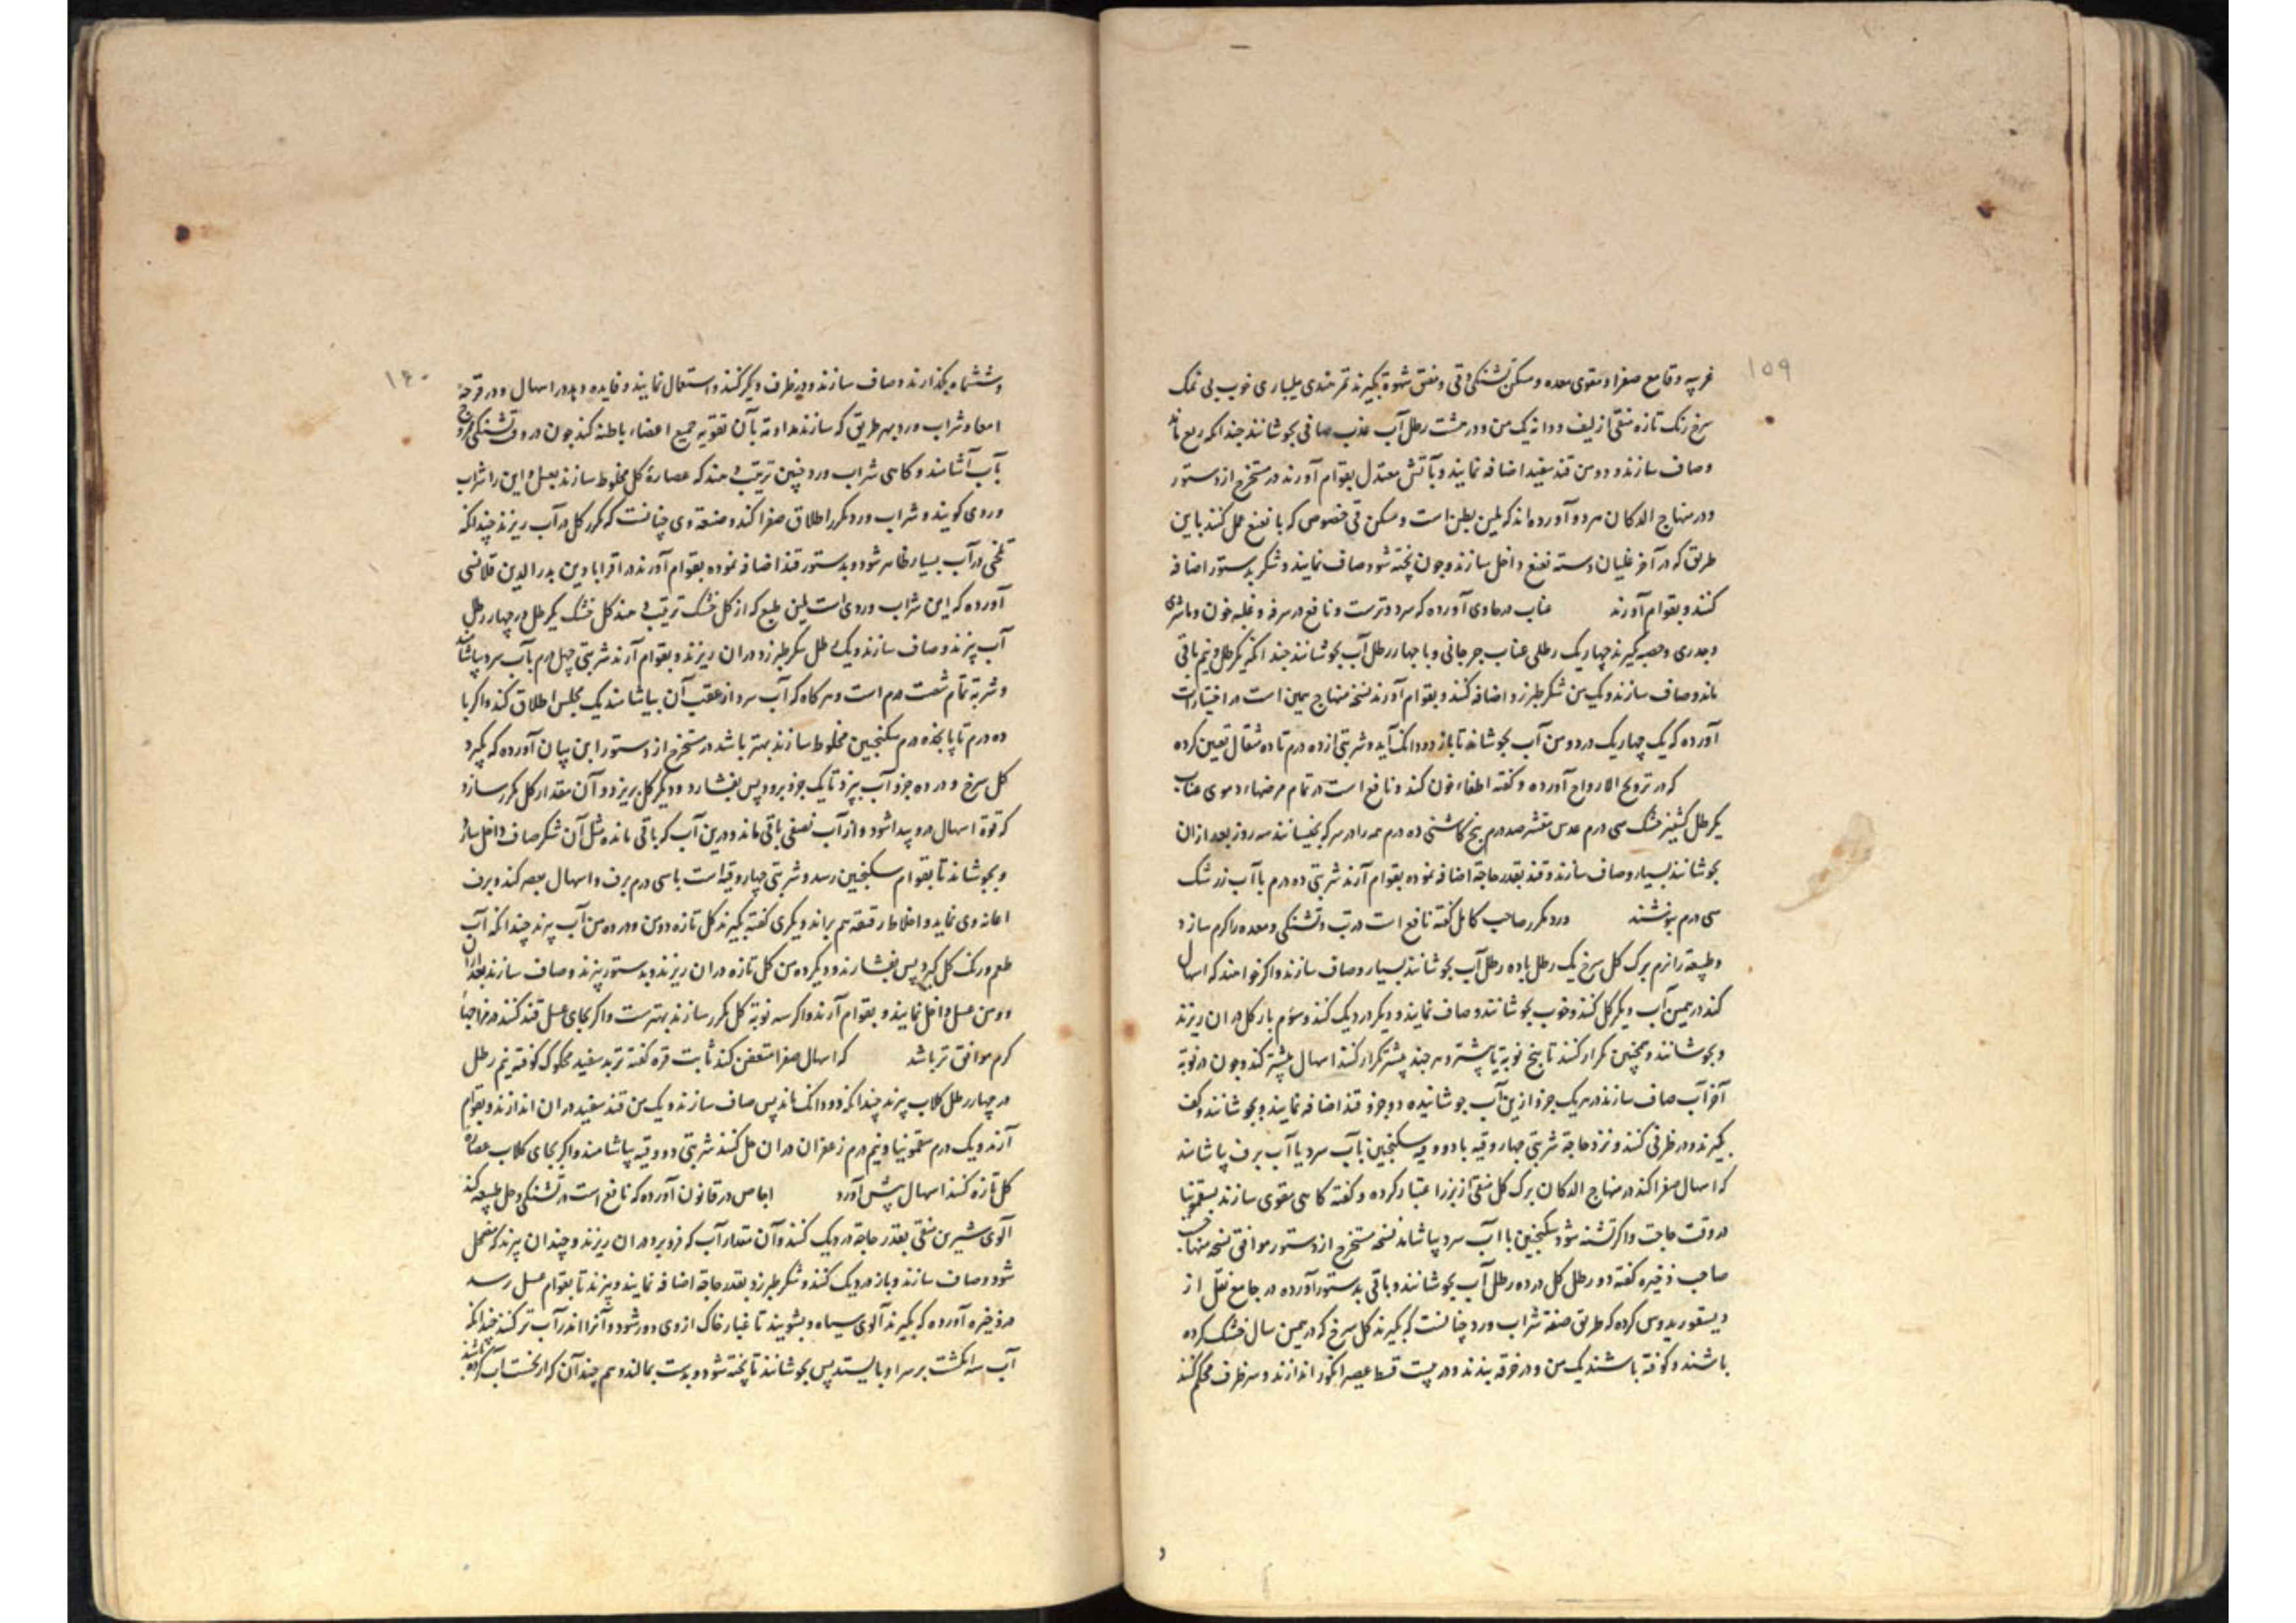 ۱۵۹
غریبه و قامع صفرا و مقوی معده و مسکن تشنکی و قی و مفتق شهوة بکیرند تمر هندی یلیباری خوب بی نمک
سرخ رنک تازه منقی از لیف و دانه یک من و در هشت رطل آب عذب صافی بجوشانند چندانکه ربع ماند
و صاف سازند و دو من قند سفید اضافه نمایند و بآتش معتدل بقوام آورند در مستخرج از دستور
و در منهاج الدکان هر دو آورده اند که ملین بطن است و مسکن قی خصوص که با نعنع عمل کنند باین
طریق که در آخر غلیان دسته نعنع داخل سازند و چون پخته شود صاف نمایند و شکر بدستور اضافه
کنند و بقوام آورند عناب در حاوی آورده که سرد و ترست و نافع در سرفه و غلبه خون و ماشری
و جدری و حصبه کیرند چهاریک رطلی عناب جرجانی و با چهار رطل آب بجوشانند چندانکه یکرطل و نیم باقی
ماند و صاف سازند و یک من شکر طبرزد اضافه کنند و بقوام آورند نسخه منهاج همین است در اختیارات
آورده که یک چهاریک در دو من آب بجوشاند تا باز دو دانک آید و شربتی از ده درم تا ده مثقال تعین کرده
که در ترویح الارواح آورده و کفته اطفاء خون کند و نافع است در تمام مرضهاء دموی عناب
یکرطل کشنیز خشک سی درم عدس مقشر صد درم بیخ کاسنی ده درم همه را در سرکه بخیسانند سه روز بعد ازان
بجوشانند بسیار و صاف سازند و قند بقدر حاجة اضافه نموده بقوام آرند شربتی ده درم با آب زرشک
سی درم بنوشند ورد مکرر صاحب کامل کفته نافع است در تب و تشنکی و معده را کرم سازد
و طبیعة را نرم برک کل سرخ یک رطل با ده رطل آب بجوشانند بسیار و صاف سازند و اکر خواهند که اسهال
کند در همین آب دیکر کل کنند و خوب بجوشانند و صاف نمایند و دیکر در دیک کنند و سوم بار کل در ان ریزند
و بجوشانند و همچنین تکرار کنند تا پنج نوبة یا پیشتر و هر چند پیشتر تکرار کنند اسهال پیشتر کند و چون در نوبة
آخر آب صاف سازند در هر یک جزو ازین آب جوشانیده دو جزو قند اضافه نمایند و بجوشانند و کف
بکیرند و در ظرفی کنند و نزد حاجة شربتی چهار وقیه با دو وقیه سکنجبین باآب سرد یا آب برف پاشامند
که اسهال صفرا کند در منهاج الدکان برک کل منقی از بزر اعتبار کرده و کفته کاهی مقوی سازند بسقمونیا
در وقت حاجت و اکر تشنه شود سکنجبین با آب سرد پیاشامد نسخه مستخرج از دستور موافق نسخه منهاج
صاحب ذخیره کفته دو رطل کل در ده رطل آب بجوشانند و باقی بدستور آورده در جامع نقل از
دیسقوریدوس کرده که طریق صنعة شراب ورد چنانست که بکیرند کل سرخ که در همین سال خشک کرده
باشند و کوفته باشند یک من و در خرقه بندند و در بیست قسط عصیر انکور اندازند و سر ظرف محکم کنند
و
۱۶۰
و ششماه بکذارند و صاف سازند و در ظرف دیکر کنند و استعمال نمایند و فایده دهد در اسهال و در قرحهٔ
امعا و شراب ورد بهر طریق که سازند مداومة بآن تقویه جمیع اعضاء باطنه کند چون در وقت تشنکی ممزوج
بآب آشامند و کاهی شراب ورد چنین ترتیب دهند که عصارهٔ کل مخلوط سازند بعسل و این را شراب
وردی کویند و شراب ورد مکرر اطلاق صفرا کند و صنعة وی چنانست که مکرر کل در آب ریزند چندانکه
تلخی در آب بسیار ظاهر شود و بدستور قند اضافه نموده بقوام آورند در اقرابادین بدرالدین قلانسی
آورده که این شراب وردی است ملین طبع که از کل خشک ترتیب دهند کل خشک یکرطل در چهار رطل
آب پزند و صاف سازند و یک رطل شکر طبرزد دران ریزند و بقوام آرند شربتی چهل درم بآب سرد پیاشامند
و شربة تمام شصت درم است و هرکاه که آب سرد از عقب آن بیاشامند یک مجلس اطلاق کند و اکر با
ده درم تا پانزده درم سکنجبین مخلوط سازند بهتر باشد در مستخرج از دستور ابن بیان آورده که بکیرد
کل سرخ و در ده جزو آب بپزد تا یک جزو برود پس بفشارد و دیکر کل بریزد و آن مقدار کل مکرر سازد
که قوة اسهال درو پیدا شود و از آب نصفی باقی ماند و درین آب که باقی مانده مثل آن شکر صاف داخل سازد
و بجوشاند تا بقوام سکنجبین رسد و شربتی چهار وقیه است باسی درم برف و اسهال بعصر کند و برف
اعانه وی نماید و اخلاط رقیقه هم براند و یکری کفته بکیرند کل تازه دو من و در ده من آب پزند چندانکه آب
طعم و رنک کل کیرد پس بفشارند و دیکر ده من کل تازه دران ریزند و بدستور بپزند و صاف سازند بعد ازان
دو من عسل داخل نمایند و بقوام آرند و اکر سه نوبة کل مکرر سازند بهترست و اکر بجای عسل قند کنند در مزاجهاء
کرم موافق تر باشد که اسهال صفرا متعفن کند ثابت قره کفته تربد سفید محکوک کوفته نیم رطل
در چهار رطل کلاب پزند چندانکه دو دانک ماند پس صاف سازند و یک من قند سفید دران اندازند و بقوام
آرند و یک درم سقمونیا و نیم درم زعفران دران حل کنند شربتی دو وقیه پاشامند و اکر بجای کلاب عصارهٔ
کل تازه کنند اسهال پیش آورد اجاص در قانون آورده که نافع است در تشنکی و حل طبیعه کند
آلوی شیرین منقی بقدر حاجة در دیک کنند و آن مقدار آب که فرو برد دران ریزند و چندان پزند که مضمحل
شود و صاف سازند و باز در دیک کنند و شکر طبرزد بقدر حاجة اضافه نمایند و پزند تا بقوام عسل رسد
در ذخیره آورده که بکیرند آلوی سیاه و بشویند تا غبار خاک از وی دور شود و آنرا اندر آب تر کنند چندانکه
آب سه انکشت بر سر او بایستد پس بجوشانند تا پخته شود و بدست بمالند و هم چند آن که از نخست آب کرده باشند